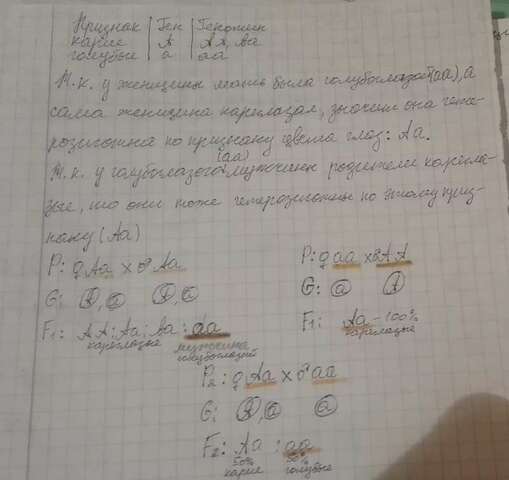 Признак | Ген | Генотип
карие | А | АА, Аа
голубые | а | аа
Т.к. у женщины мать была голубоглазой (аа), а
сама женщина кареглазая, значит она гете-
розиготна по признаку цвета глаз: Аа.
(аа)
Т.к. у голубоглазого мужчины родители карегла-
зые, то они тоже гетерозиготны по этому приз-
наку (Аа)
P: ♀ Аа × ♂ Аа
G: А, а А, а
F1: АА : Аа : Аа : аа
кареглазые мужчина
голубоглазый
P: ♀ аа × ♂ АА
G: а А
F1: Аа - 100%
кареглазые
P2: ♀ Аа × ♂ аа
G: А, а а
F2: Аа : аа
50% 50%
карие голубые